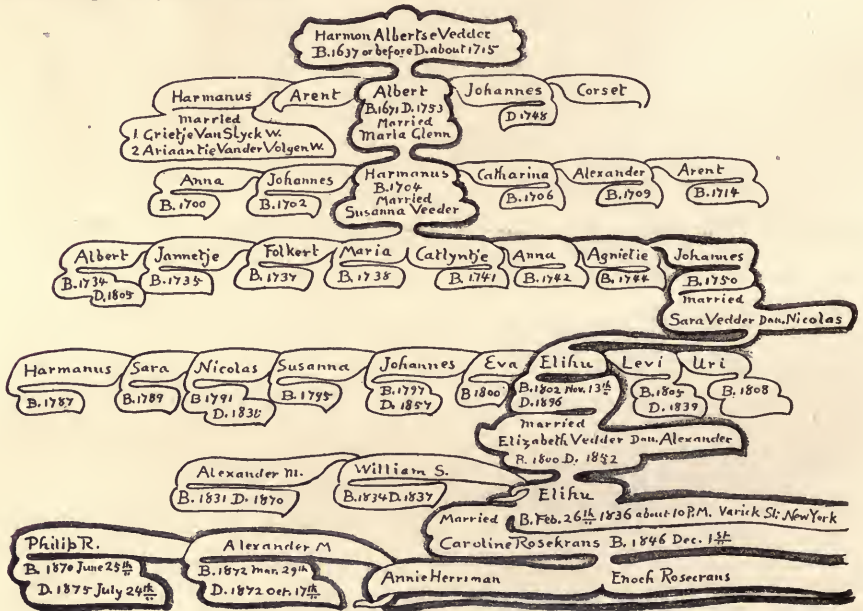 Harmon Albertse Vedder
B. 1637 or before D. about 1715
Harmanus
married
1 Grietje Van Slyck W.
2 Ariaantie Vander Volgen W.
Arent
Albert
B. 1671 D. 1753
Married
Maria Glenn
Johannes
D 1748
Corset
Anna
B. 1700
Johannes
B. 1702
Harmanus
B. 1704
Married
Susanna Veeder
Catharina
B. 1706
Alexander
B. 1709
Arent
B. 1714
Albert
B. 1734
D. 1805
Jannetje
B. 1735
Folkert
B. 1737
Maria
B. 1738
Catlyntje
B. 1741
Anna
B. 1742
Agnietie
B. 1744
Johannes
B. 1750
married
Sara Vedder Dau. Nicolas
Harmanus
B. 1787
Sara
B. 1789
Nicolas
B. 1791
Susanna
B. 1795
Johannes
B. 1797
D. 1857
Eva
B 1800
Elihu
B. 1802 Nov. 13th
D. 1896
married
Elizabeth Vedder Dau. Alexander
B. 1800 D. 1852
Levi
B. 1805
D. 1839
Uri
B. 1808
Alexander M.
B. 1831 D. 1870
William S.
B. 1834 D. 1837
Elihu
B. Feb. 26th 1836 about 10 P.M. Varick St: New York
Married
Caroline Rosekrans B. 1846 Dec. 1st
Philip R.
B. 1870 June 25th
D. 1875 July 24th
Alexander M
B. 1872 Mar. 29th
D. 1872 Oct. 17th
Annie Herriman
Enoch Rosecrans